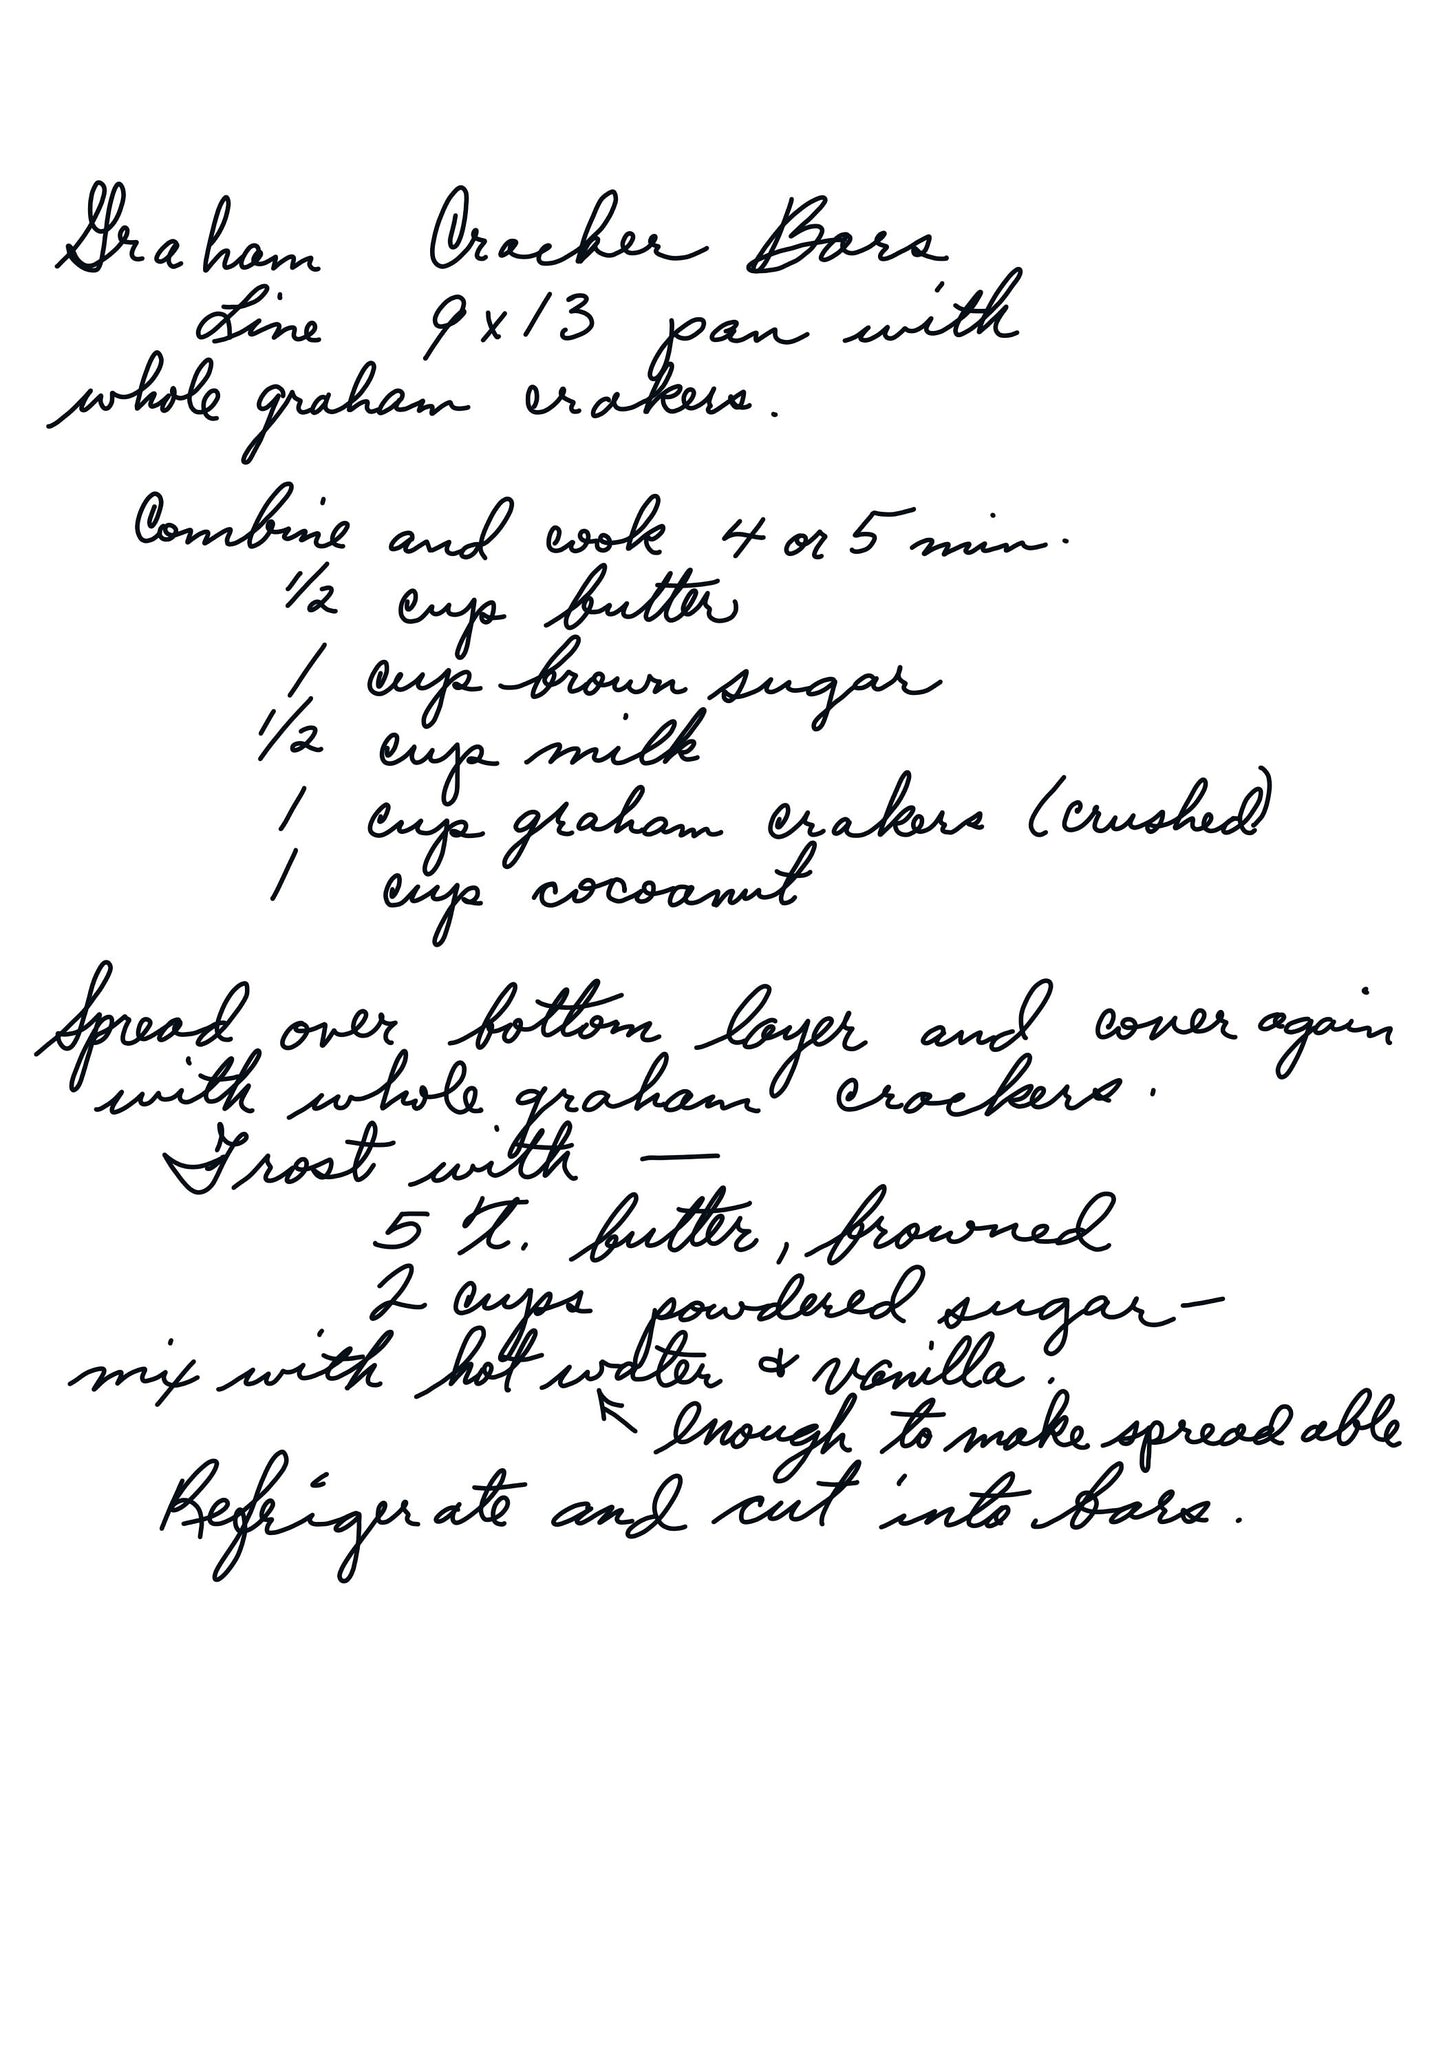 Graham Cracker Bars
Line 9x13 pan with
whole graham crakers.
Combine and cook 4 or 5 min.
1/2 cup butter
1 cup brown sugar
1/2 cup milk
1 cup graham crakers (crushed)
1 cup cocoanut
Spread over bottom layer and cover again
with whole graham crackers.
Frost with —
5 T. butter, browned
2 cups powdered sugar —
mix with hot water & vanilla.
↖ enough to make spreadable
Refrigerate and cut into bars.